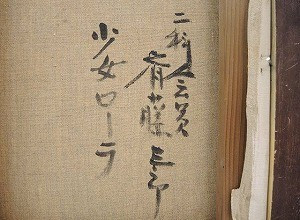 二科会会員
斉藤三郎
少女ローラ